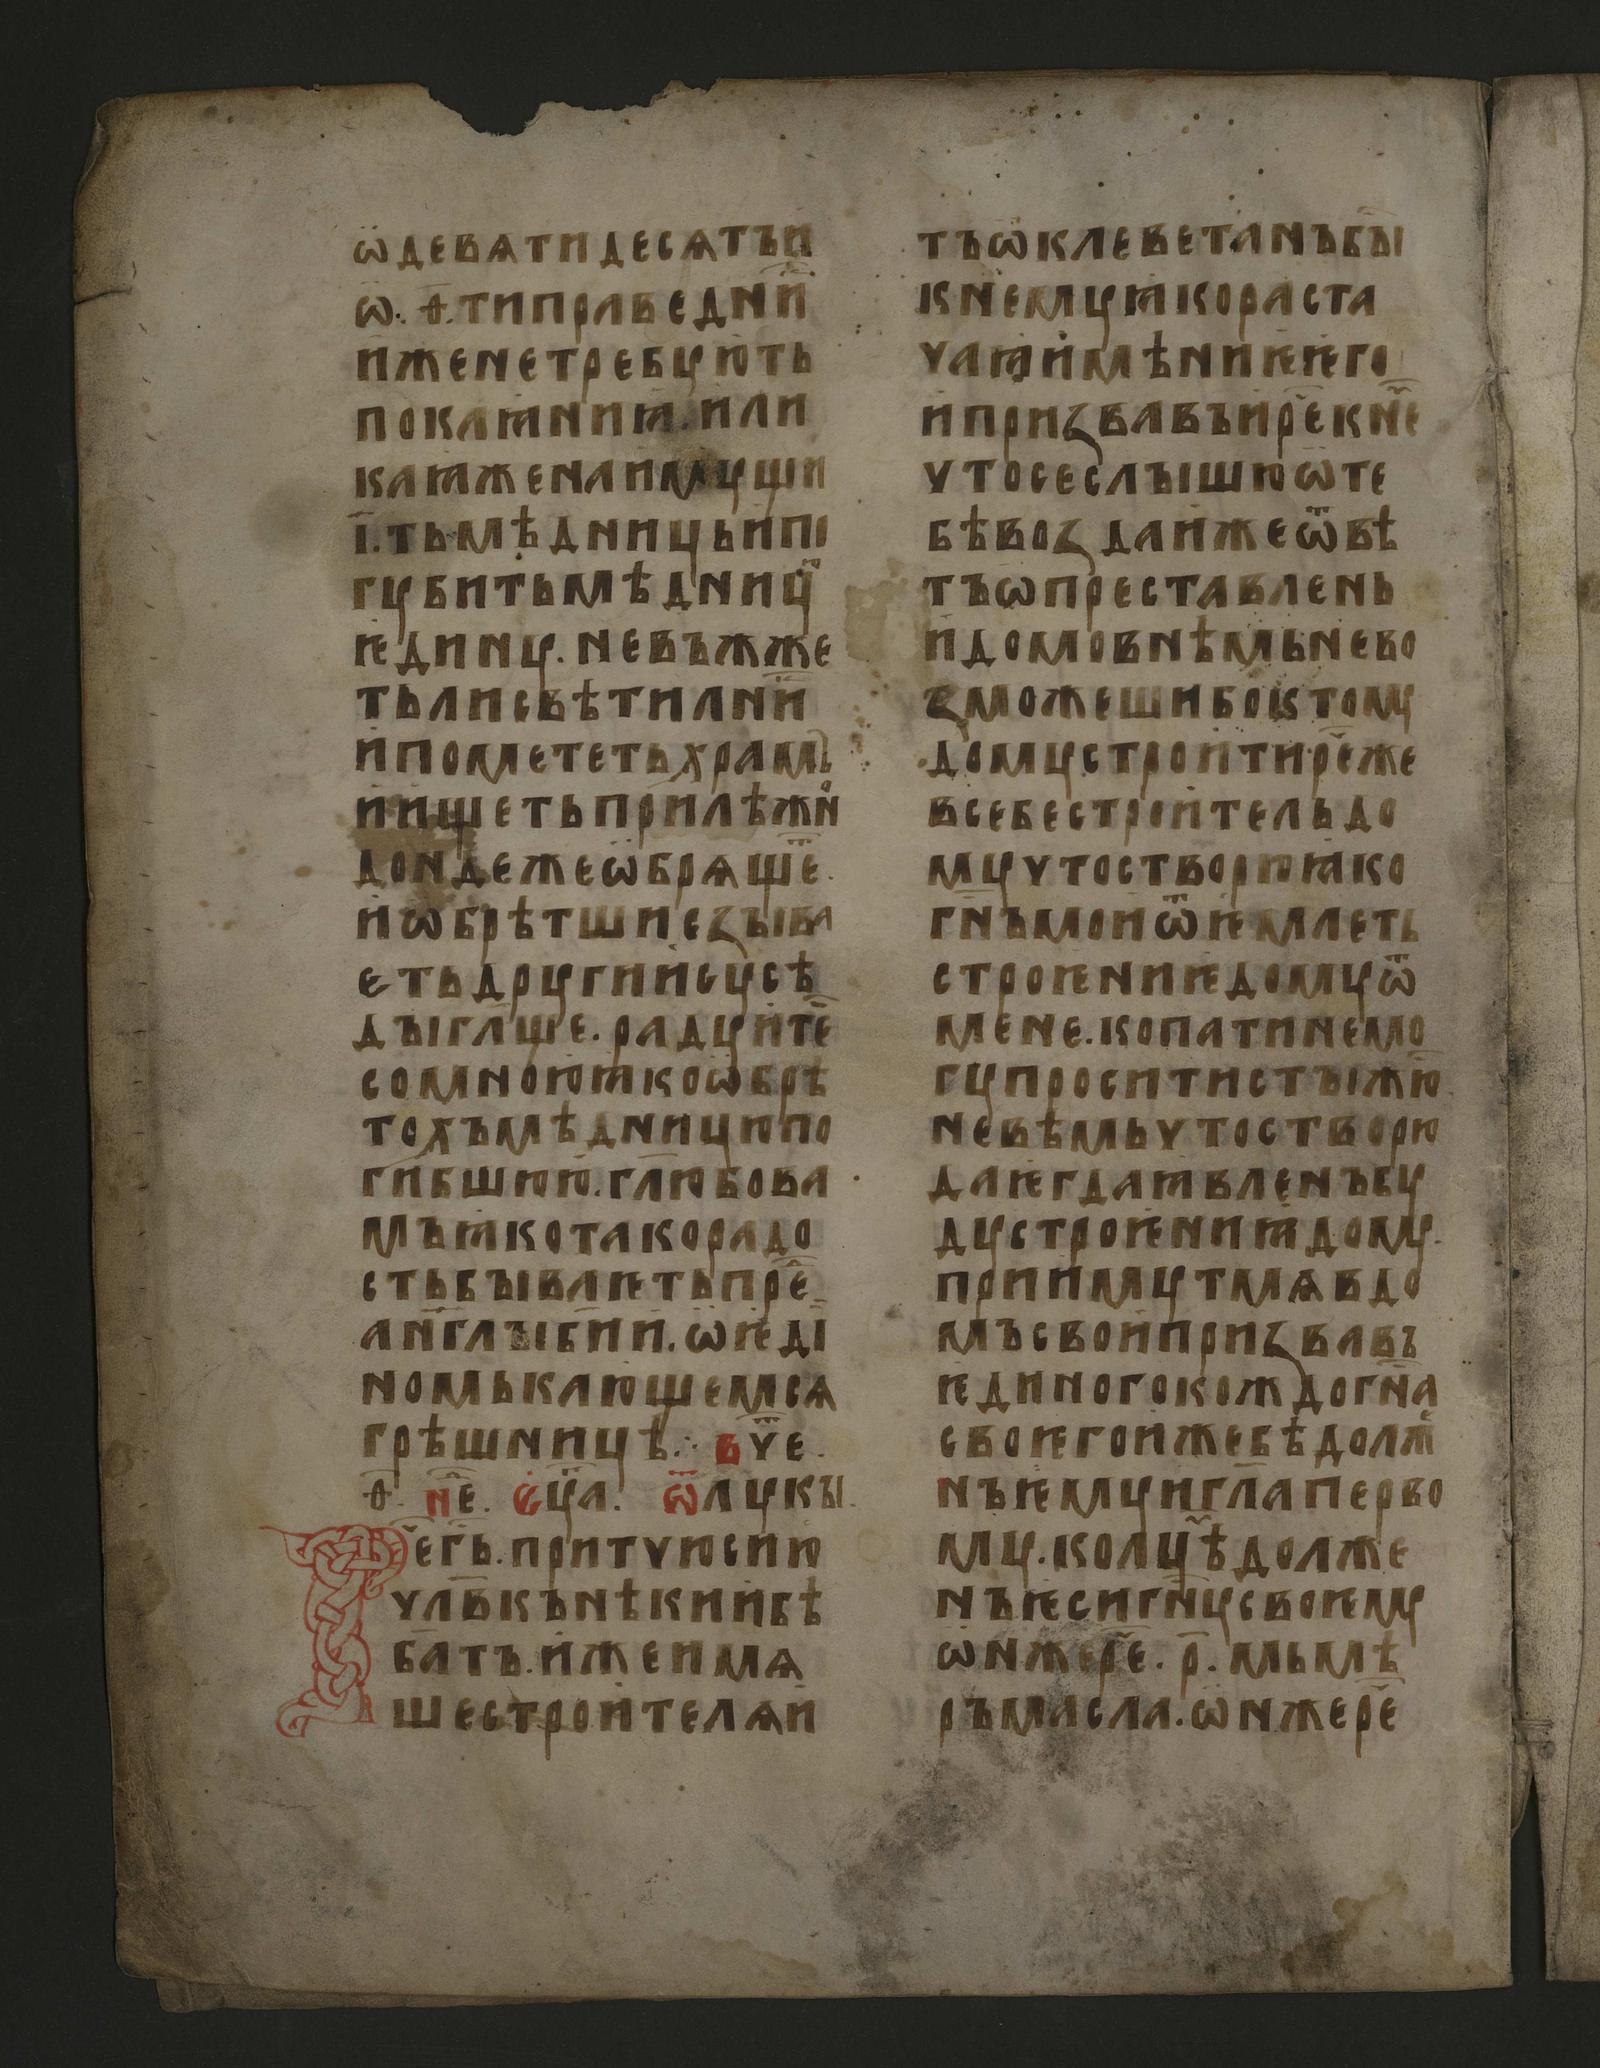 ѿдевѧтидесѧтъи
ѡ.ѳ.типраведнⷯи
иженетребꙋють
покаꙗниꙗ.или
каꙗженаимꙋщи
і҃.тьмѣдницьипо
гꙋбитьмѣдницⷭ
ѥдинꙋ.невъжже
тьлисвѣтилнⷤи
ипомететьхрамъ
иищетьприлѣжⷩно
дондежеѡбрѧщеⷮ.
иѡбрѣтшиезъіва
етьдрꙋгиисꙋсѣ
дъігл҃ще.радꙋитеⷭ
сомноюꙗкоѡбрѣ
тохъмѣдницюпо
гибшюю.гл҃юбова
мъꙗкотакорадо
стьбъіваѥтьпреⷣ
ан҃глъіби҃и.ѡѥді
номькающемсѧ
грѣшницѣ.: вчеⷮ.
ѳ҃. неⷣ. еѵ҃а. ѿлꙋкъі.
Рече́гь.притчюсию
чл҃вкънѣкиибѣ
батъ.ижеимѧ
шестроителѧи
тъѡклеветанъбъіⷭ
кнемꙋꙗкораста
чаꙗимѣниѥѥго
ипризвавъиреⷱкнеⷨ
чтосеслъішюѿте
бѣвоздаижеѿвѣ
тъѡпреставлень
идомовнѣмьнево
зможешибоктомꙋ
домꙋстроитиреⷱже
всебестроительдо
мꙋчтостворюꙗко
гн҃ъмоиѿѥмлеть
строѥниѥдомꙋѿ
мене.копатинемо
гꙋпроситистъіжюⷭ
невѣмьчтостворю
даѥгдаꙗвленъбꙋ
дꙋстроѥниꙗдомꙋ.
приимꙋтмѧвдо
мъсвоипризвавъ
ѥдиногокождогн҃а
своѥгоижебѣдолжⷤ
нъѥмꙋигл҃аперво
мꙋ.колцⷨѣдолже
нъѥсигн҃ꙋсвоѥмꙋ
ѡнжереⷱ.р҃.мьмѣ
ръмасла.ѡнжереⷱ